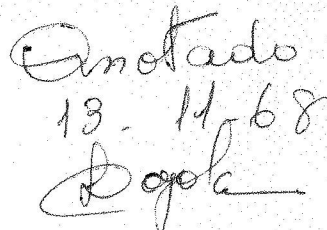 Anotado
13. 11-68